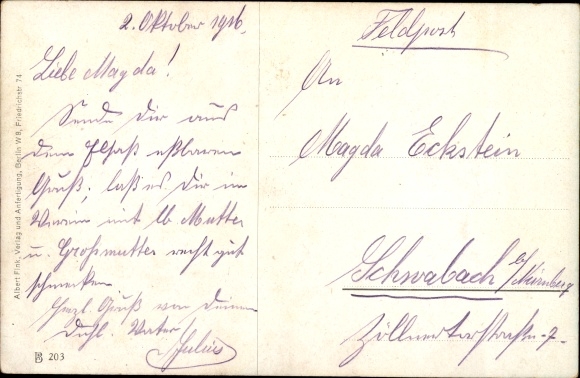 2. Oktober 1916.
Liebe Magda!
Sende Dir aus
dem Elsaß
Gruß; laß es Dir im
Verein mit lb. Mutter
u. Großmutter recht gut
schmecken.
Herzl. Gruß von Deinem
Vater
Julius
Feldpost
An
Magda Eckstein
Schwabach b/Nürnberg
Zöllnertorstraße -7-
Albert Fink, Verlag und Anfertigung, Berlin W8, Friedrichstr 74
203